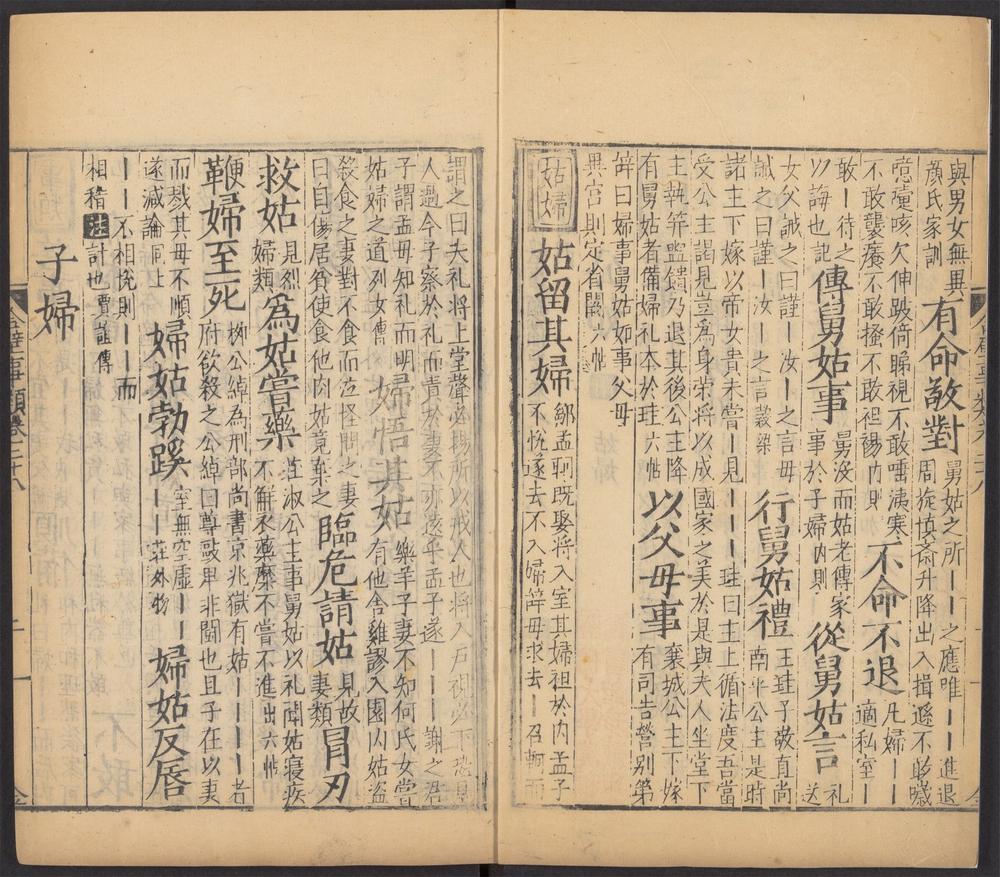 與男女無異
顔氏家訓
有命敬對
舅姑之所｜｜之應唯｜｜進退
周旋慎齋升降出入揖遜不敢噦
噫嚏咳欠伸跛倚睇視不敢唾洟寒
不敢襲癢不敢搔不敢袒裼內則
不命不退
凡婦｜｜
適私室｜
敢｜待之
以誨也記
傳舅姑事
舅沒而姑老傳家
事於子婦內則
從舅姑言
礼
送
女父誡之曰謹｜汝｜之言毋
誡之曰謹｜汝｜之言穀梁
行舅姑禮
王珪子敬直尚
南平公主是時
諸主下嫁以帝女貴未嘗｜見｜｜｜珪曰主上循法度吾當
受公主謁見豈為身荣将以成國家之美於是與夫人坐堂下
主執笲盥饋乃退其後公主降
有舅姑者備婦礼本於珪六帖
以父母事
襄城公主下嫁
有司告營别第
辞曰婦事舅姑如事父母
異宫則定省闕六帖
姑婦
姑留其婦
鄒孟軻既娶将入室其婦袒於內孟子
不悦遂去不入婦辞毋求去｜召軻而
謂之曰夫礼将上堂聲必揚所以戒人也将入户視必下恐見
人過今子察於礼而責於妻不亦遠乎孟子遂｜｜｜謝之君
子謂孟毋知礼而明
姑婦之道列女傳
婦悟其姑
樂羊子妻不知何氏女嘗
有他舍雞謬入園內姑盗
殺食之妻對不食而泣怪問之妻
曰自傷居貧使食他肉姑竟棄之
臨危請姑
見故
妻類
冒刃
救姑
見烈
婦類
為姑嘗藥
莊淑公主事舅姑以礼聞姑寝疾
不解衣藥糜不嘗不進出六帖
鞭婦至死
柳公綽為刑部尚書京兆獄有姑｜｜｜｜者
府欲殺之公綽曰尊毆卑非鬭也且子在以妻
而戮其毋不順
遂減論同上
婦姑勃蹊
室無空虛｜｜
｜｜莊外物
婦姑反唇
｜｜不相悅則｜｜而
相稽注計也賈誼傳
子婦